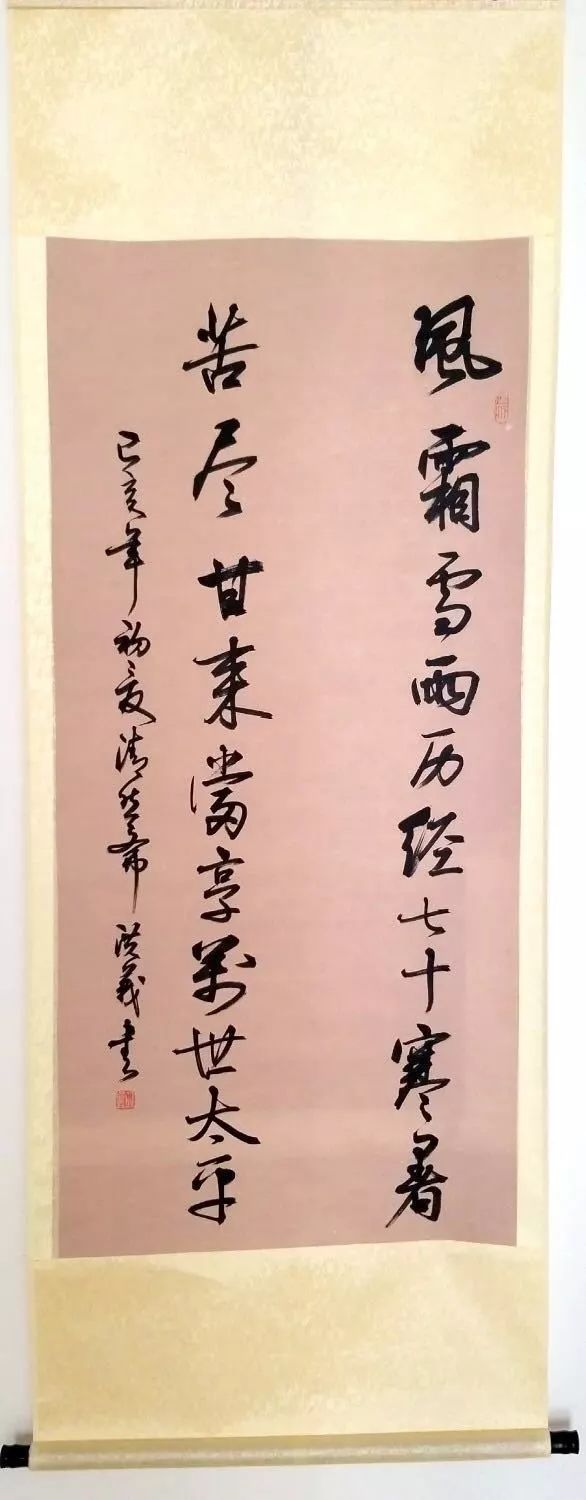 風霜雪雨历经七十寒暑
苦尽甘来當享萬世太平
己亥年初夏清 洪義书